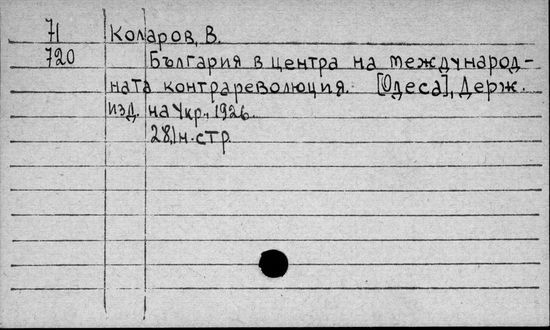 71 Коларов, В.
720 България в центра на международ-
ната контрареволюция. [Одеса], Держ.
изд. на Укр., 1926.
28,1н. стр.